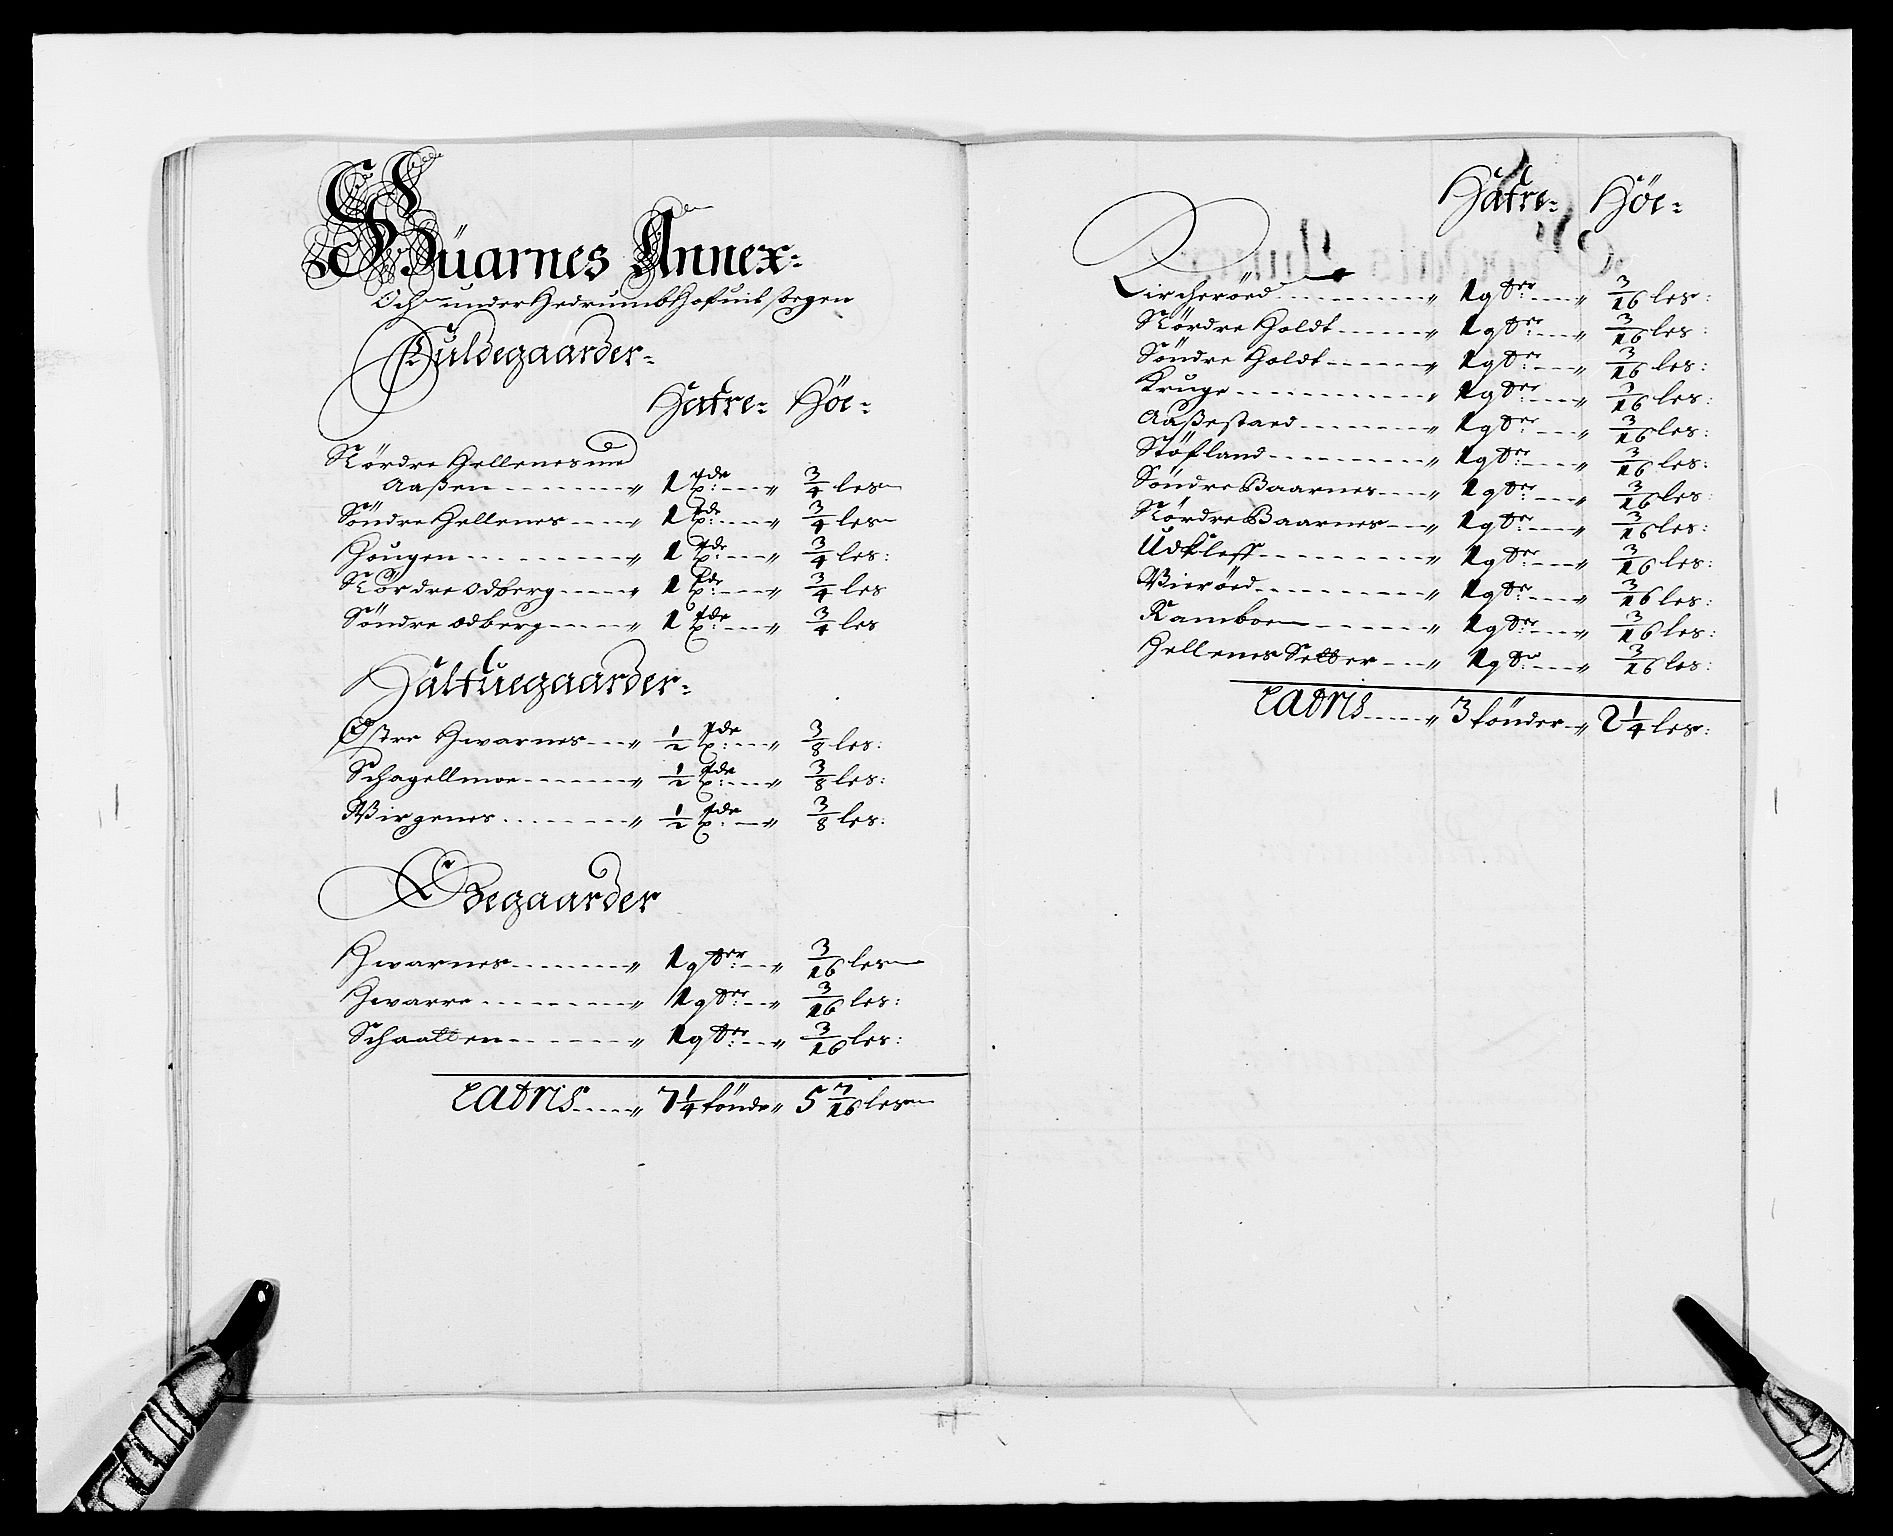 Qüarnes Annex:
Och under Hedrumb Hofuit sogen
Fuldegaarder:
Hafre: Höe:
Nördre Hellenes med
Aaßen ... 1 tde: ... 3/4 les
Söndre Hellenes ... 1 tde: ... 3/4 les
Hougen ... 1 tde: ... 3/4 les:
Nördre odberg ... 1 tde: ... 3/4 les
Söndre odberg ... 1 tde: ... 3/4 les
Halfuegaarder:
Östre Hwarnes ... 1/2 tde: ... 3/8 les:
Schagellmoe ... 1/2 tde: ... 3/8 les:
Wirgenes ... 1/2 tde: ... 3/8 les:
Ödegaarder
Hwarnes ... 1 qter: ... 3/16 les
Hwarre ... 1 qter: ... 3/16 les:
Schaatten ... 1 qter: ... 3/16 les:
Latris ... 7 1/4 tönde 5 7/16 les
Hafre: Höe:
Kircheröed ... 1 qter: ... 3/16 les:
Nördre Holdt ... 1 qter: ... 3/16 les
Söndre Holdt ... 1 qter: ... 3/16 les:
Kruge ... 1 qter: ... 3/16 les:
Aaßestaed ... 1 qter: ... 3/16 les:
Stöfland ... 1 qter: ... 3/16 les:
Söndre Baarnes ... 1 qter: ... 3/16 les:
Nördre Baarnes ... 1 qter: ... 3/16 les:
Udkleff ... 1 qter: ... 3/16 les:
Wieröed ... 1 qter: ... 3/16 les:
Ramboe ... 1 qter: ... 3/16 les:
Hellenes Setter ... 1 qter: ... 3/16 les:
Latris ... 3 tönder 2 1/4 les: